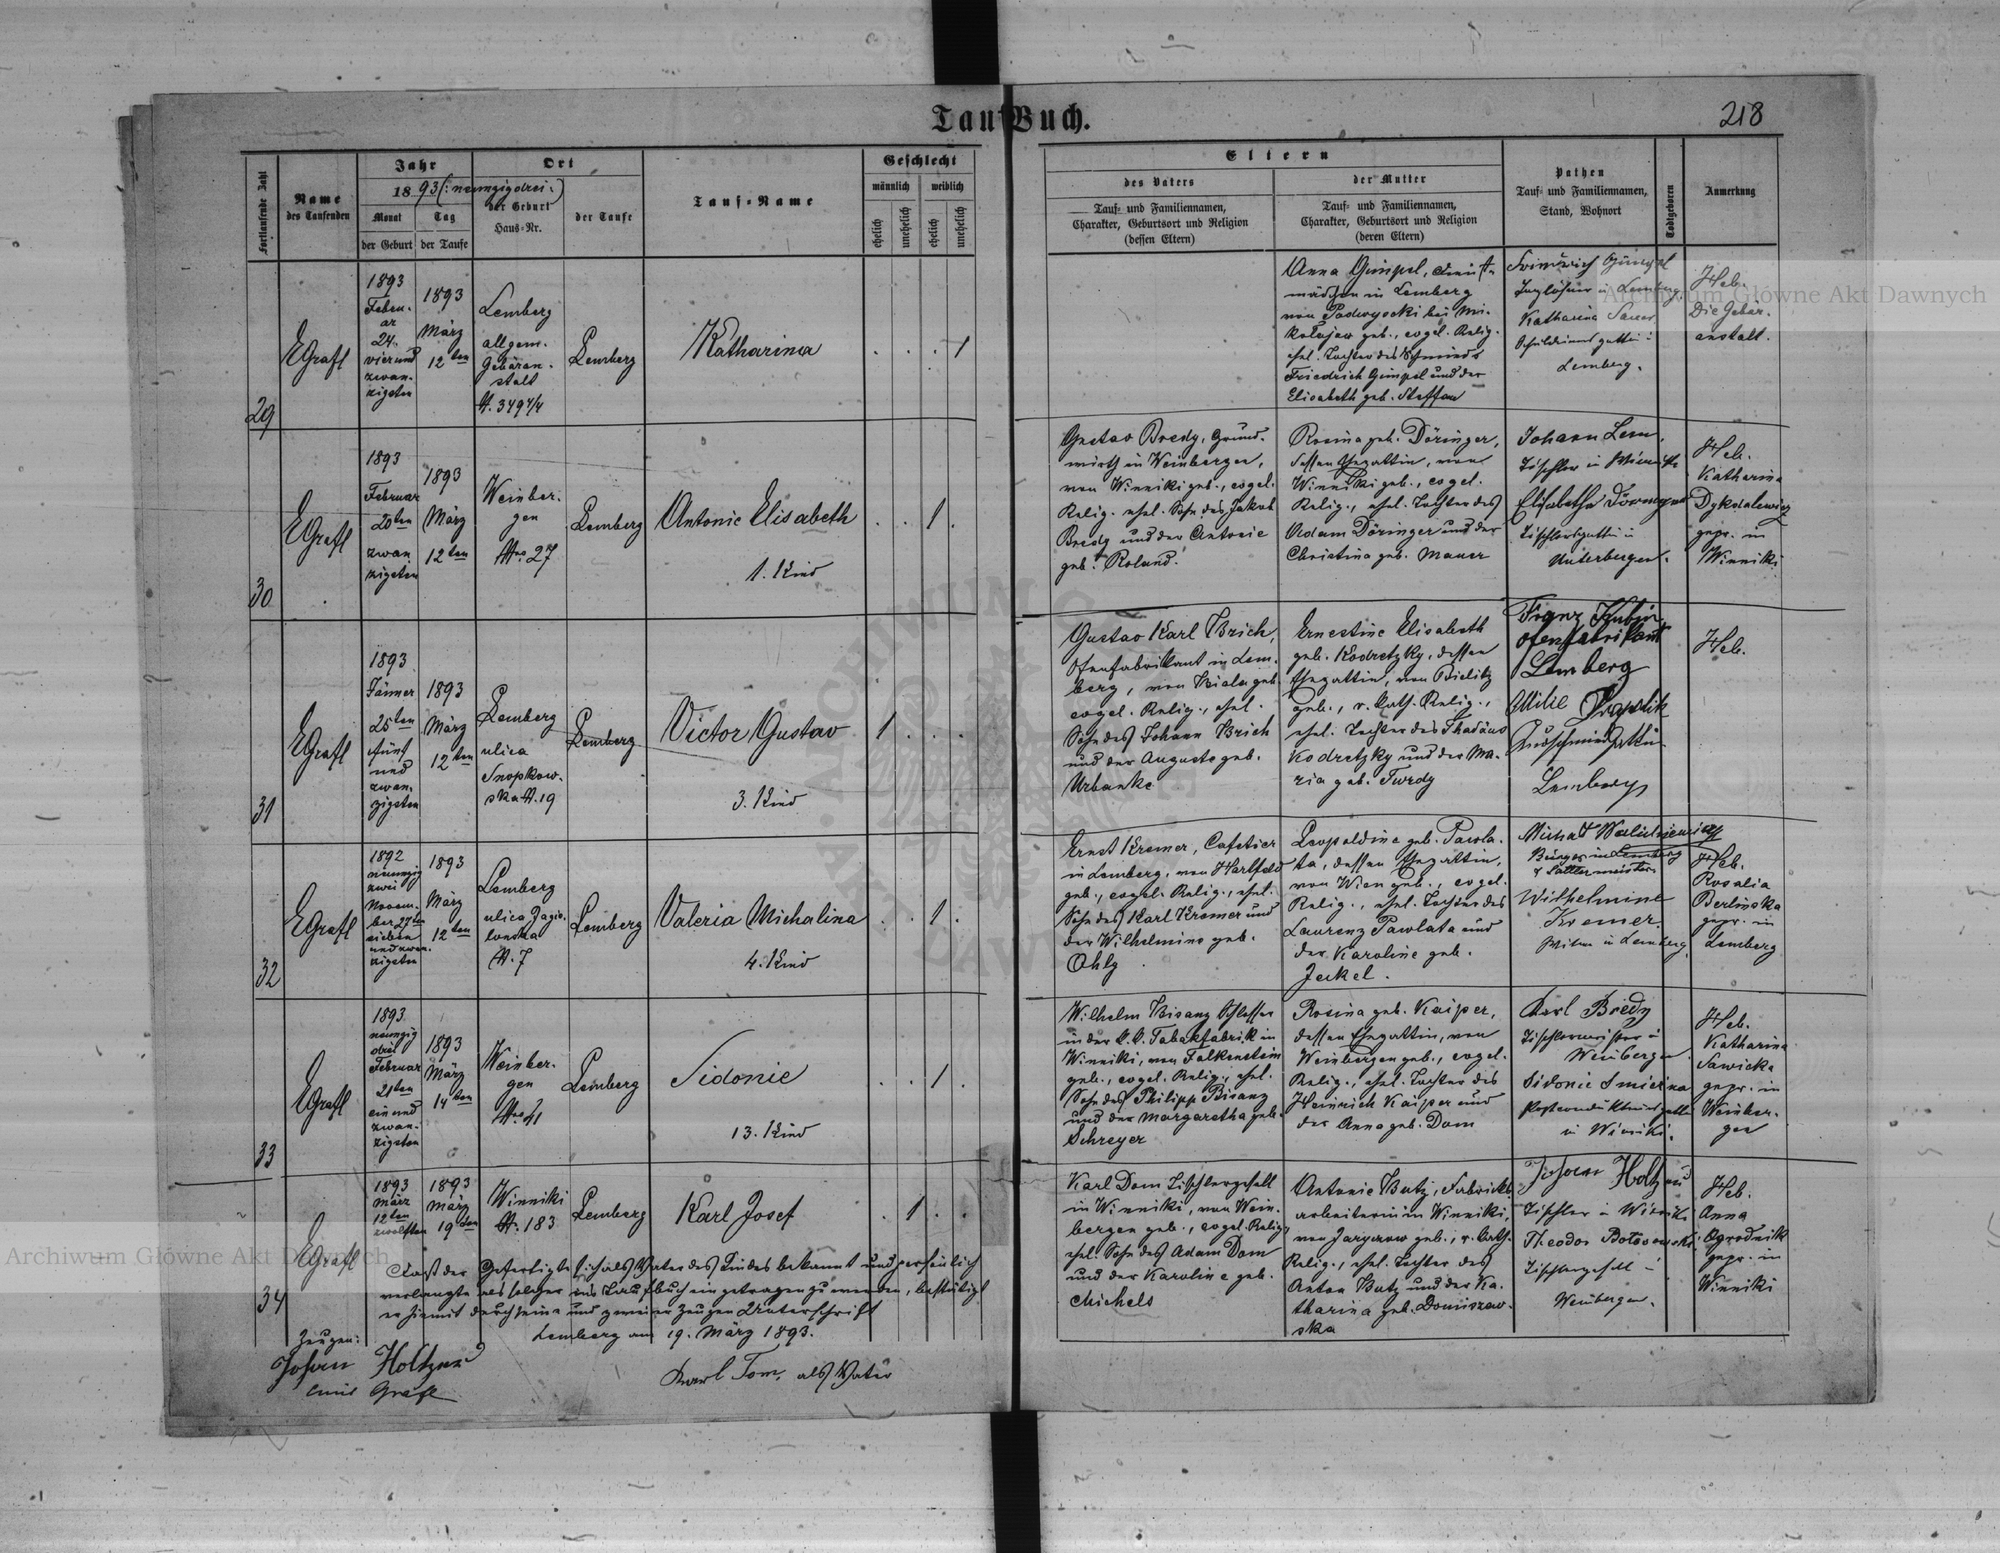 Tauf Buch.
218
Fortlaufende Zahl
Name
des Taufenden
Jahr
1893 (: neunzigdrei :)
Monat
der Geburt
Tag
der Taufe
Ort
der Geburt
Haus-Nr.
der Taufe
Tauf-Name
Geschlecht
männlich
weiblich
ehelich
unehelich
ehelich
unehelich
Eltern
des Vaters
Tauf- und Familiennamen,
Charakter, Geburtsort und Religion
(dessen Eltern)
der Mutter
Tauf- und Familiennamen,
Charakter, Geburtsort und Religion
(deren Eltern)
Pathen
Tauf- und Familiennamen,
Stand, Wohnort
Todtgeboren
Anmerkung
29
EGrafl
1893
Febru-
ar
24.
vierund
zwan-
zigsten
1893
März
12ten
Lemberg
allgem.
Gebäran-
stalt
N. 349 4/4
Lemberg
Katharina
1
Anna Gimpel, Dienst-
mädchen in Lemberg
von Podwysocki bei Mi-
kołajow geb., evgel. Relig.
ehel. Tochter des Schmieds
Friedrich Gimpel und der
Elisabeth geb. Steffan
Friedrich Gimpel
Taglöhner in Lemberg
Katharina Sauer
Lemberg.
Heb.
Die Gebär-
anstalt.
30
EGrafl
1893
Februar
20ten
zwan
zigsten
1893
März
12ten
Weinber-
gen
Nro 27
Lemberg
Antonie Elisabeth
1. Kind
1
Gustav Bredy, Grund-
wirth in Weinbergen,
von Winniki geb., evgel.
Relig. ehel. Sohn des Jakob
Bredy und der Antonie
geb. Roland.
Rosina geb. Döringer,
dessen Ehegattin, von
Winniki geb., evgel.
Relig., ehel. Tochter des
Adam Döringer und der
Christina geb. Mauer
Johann Lem,
Tischler in Winniki
Elisabetha
Tischlersgattin in
Unterbergen.
Heb.
Katharina
gepr. in
Winniki
31
EGrafl
1893
Jänner
25ten
fünf
und
zwan-
zigsten
1893
März
12ten
Lemberg
ulica
Snopkow-
ska N. 19
Lemberg
Victor Gustav
3. Kind
1
Gustav Karl Brich,
Ofenfabrikant in Lem-
berg, von Biala geb.
evgel. Relig., ehel.
Sohn des Johann Brich
und der Auguste geb.
Urbanke
Ernestine Elisabeth
geb. Kodretzky, dessen
Ehegattin, von Bielitz
geb., r. kath. Relig.,
ehel. Tochter des Thadäus
Kodretzky und der Ma-
ria geb. Twrdy
Franz
Ofenfabrikant
Lemberg
Lemberg
Heb.
32
EGrafl
1892
neunzig
zwei
Novem-
ber 27ten
sieben
und zwan-
zigsten
1893
März
12ten
Lemberg
ulica Jagie-
lonska
N. 7
Lemberg
Valeria Michalina
4. Kind
1
Ernst Kremer, Cafetier
in Lemberg, von Hartfeld
geb., evgel. Relig., ehel.
Sohn des Karl Kremer und
der Wilhelmine geb.
Ohly
Leopoldine geb. Pawla-
ta, dessen Ehegattin,
von Wien geb., evgel.
Relig., ehel. Tochter des
Laurenz Pawlata und
der Karoline geb.
Jeckel.
Michał
Bürger in Lemberg
& Sattlermeister
Wilhelmine
Kremer
Witwe in Lemberg.
Heb.
Rosalia
Berlinska
gepr. in
Lemberg
33
EGrafl
1893
neunzig
drei
Februar
21ten
ein und
zwan-
zigsten
1893
März
14ten
Weinber-
gen
Nro 41
Lemberg
Sidonie
13. Kind
1
Wilhelm Bisanz Schlosser
in der k.k. Tabakfabrik in
Winniki, von Falkenstein
geb., evgel. Relig., ehel.
Sohn des Philipp Bisanz
und der Margaretha geb.
Schreyer
Rosina geb. Kaiper,
dessen Ehegattin, von
Weinbergen geb., evgel.
Relig., ehel. Tochter des
Heinrich Kaiper und
der Anna geb. Dom
Karl Bredy
Tischlermeister in
Weinbergen.
Sidonie
in Winniki.
Heb.
Katharina
Sawicka
gepr. in
Weinber-
gen
34
EGrafl
1893
März
12ten
zwölften
1893
März
19ten
Winniki
N. 183
Lemberg
Karl Josef
1
Karl Dom Tischlergesell
in Winniki, von Wein-
bergen geb., evgel. Relig.,
ehel. Sohn des Adam Dom
und der Karoline geb.
Michels
Antonie Butz, Fabricks-
arbeiterin in Winniki,
von Jaryczow geb., r. kath.
Relig., ehel. Tochter des
Anton Butz und der Ka-
tharina geb. Domiszew-
ska
Johann Holtzer
Tischler in Winniki
Theodor
Tischlergesell in
Weinbergen.
Heb.
Anna
Ogrodnik
gepr. in
Winniki
Daß der Gefertigte sich als Vater des Kindes bekannt und persönlich
verlangte als solcher ins Taufbuch eingetragen zu werden, bestätigt
er hiemit durch seine und zweier Zeugen Unterschrift
Lemberg am 19. März 1893.
Zeugen:
Johann Holtzer
Emil Grafl
Karl Dom, als Vater
Archiwum Główne Akt Dawnych
Archiwum Główne Akt Dawnych